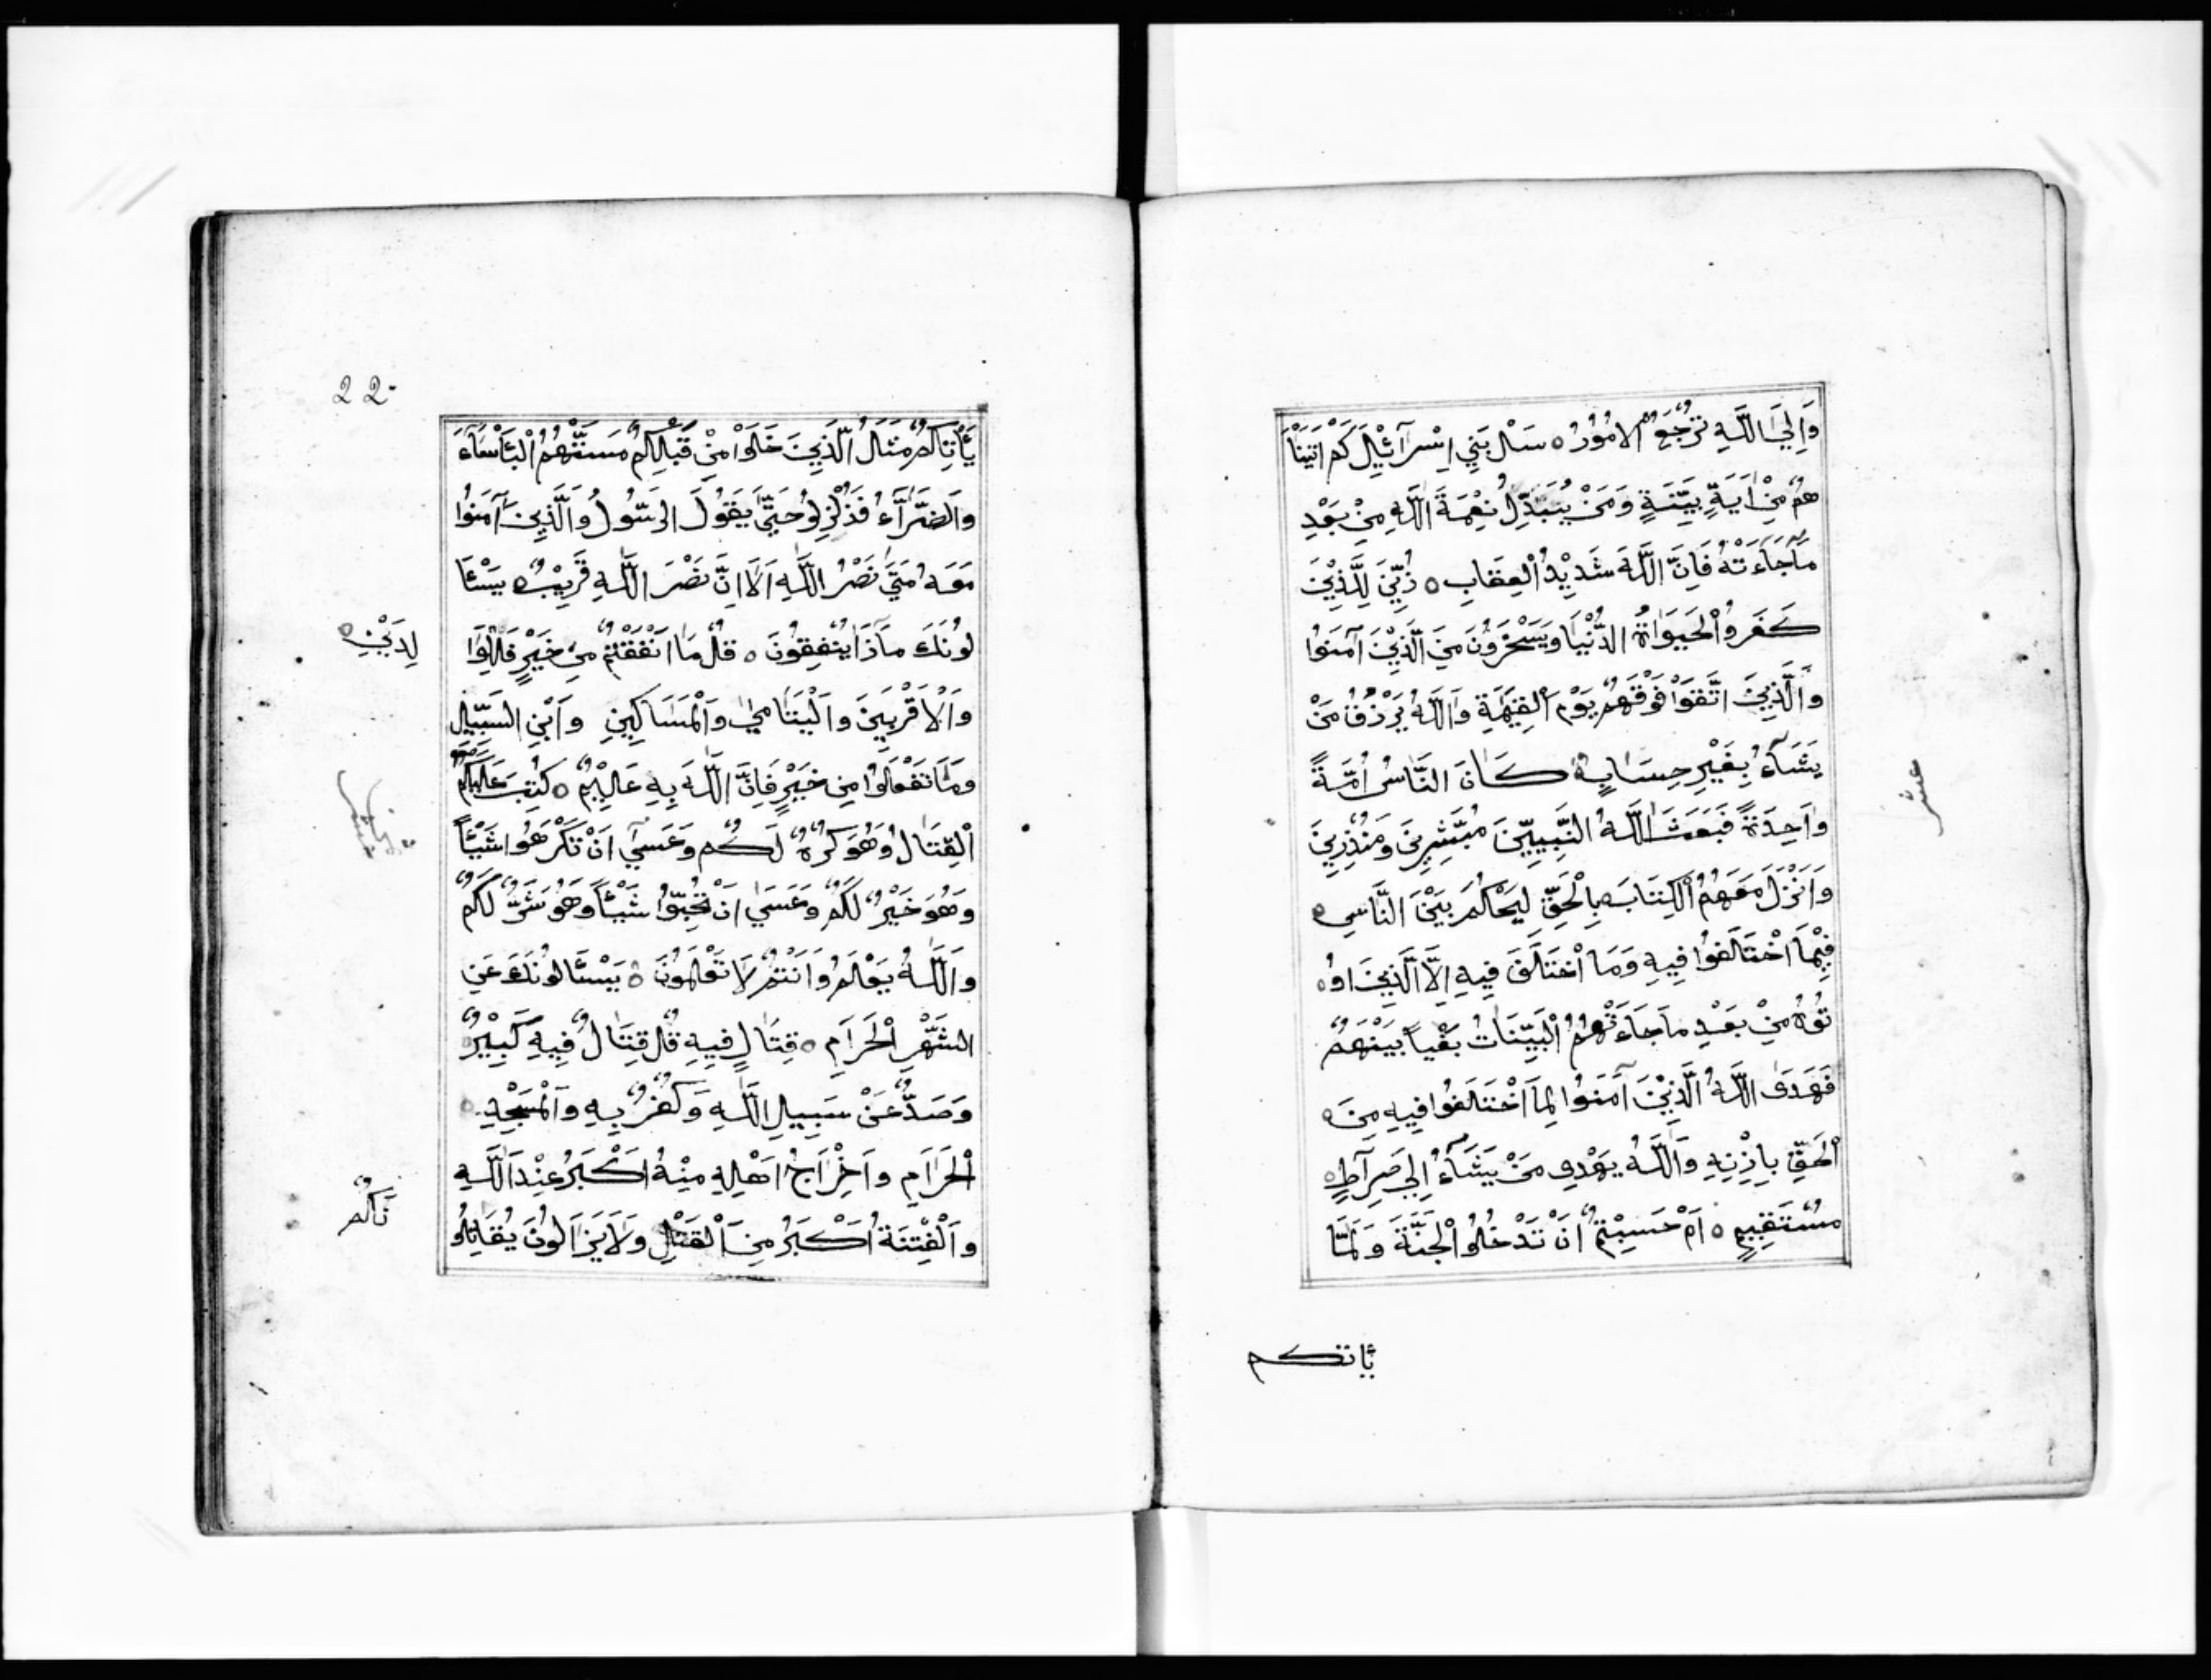 وَاِلَيَ اللَّهِ تُرْجَعُ الامُوْرُ ه سَلْ بَنِي اِسْرَآئْيْلَ كَمْ اتَيْنَا
هُمْ مِنْ اَيَةٍ بَيِّنَةٍ وَمَنْ يُبَدِّلْ نِعْمَةَ اللَّهِ مِنْ بَعْدِ
مَاجَاءَتْهُ فَاِنَّ اللَّهَ شَدِيْدُ الْعِقَابِ ه زُيِّنَ لِلَّذِيْنَ
كَفَرُوا الْحَيَوٰاةُ الدُّنْيَا وَيَسْخَرُوْنَ مِنَ الَّذِيْنَ آمَنُوا
وَالَّذِيْنَ اتَّقَوْا فَوْقَهُمْ يَوْمَ الْقِيٰمَةِ وَاللَّهُ يَرْزُقُ مَنْ
يَشَآءُ بِغَيْرِ حِسَابٍ ه كَانَ النَّاسُ اُمَّةً
وَاحِدَةً فَبَعَثَ اللَّهُ النَّبِيِّيْنَ مُبَشِّرِيْنَ وَمُنْذِرِيْنَ
وَاَنْزَلَ مَعَهُمُ الْكِتَابَ بِالْحَقِّ لِيَحْكُمَ بَيْنَ النَّاسِ ه
فِيْمَا اخْتَلَفُوْا فِيهِ وَمَا اخْتَلَفَ فِيهِ اِلَّا الَّذِيْنَ اوُ ه
تُوْهُ مِنْ بَعْدِ مَاجَاءَتْهُمُ الْبَيِّنَاتُ بَغْياً بَيْنَهُمْ
فَهَدَى اللَّهُ الَّذِيْنَ آمَنُوا لِمَا اخْتَلَفُوا فِيهِ مِنَ ه
الْحَقِّ بِاِذْنِهِ وَاللَّهُ يَهْدِى مَنْ يَشَآءُ اِلِى صِرَآطٍ ه
مُسْتَقِيمٍ ه اَمْ حَسِبْتُمْ اَنْ تَدْخُلُوا الْجَنَّةَ وَلَمَّا
ياتكم
عشر
22
يَأْتِكُمْ مَثَلُ الَّذِيْنَ خَلَوْا مِنْ قَبْلِكُمْ مَسَّتْهُمُ الْبَأْسَآءُ
وَالضَّرَّآءُ وَزُلْزِلُوْا حَتَّى يَقُوْلَ الرَّسُولُ وَالَّذِيْنَ آمَنُوْا
مَعَهُ مَتَي نَصْرُ اللَّهِ اَلَا اِنَّ نَصْرَ اللَّهِ قَرِيْبٌ ه يَسْئَا
لُوْنَكَ مَاذَا يُنْفِقُوْنَ ه قُلْ مَا اَنْفَقْتُمْ مِنْ خَيْرٍ فَلِلْوَا
لِدَيْنِ ه
وَالْاَقْرَبِيْنَ وَالْيَتَامَيٰ وَالْمَسَاكِيْنِ وَابْنِ السَّبِيْلِ
وَمَا تَفْعَلُوْا مِنْ خَيْرٍ فَاِنَّ اللَّهَ بِهِ عَلِيْمٌ ه كُتِبَ عَلَيْكُمُ
الْقِتَالُ وَهُوَ كُرْهٌ لَكُمْ وَعَسَىٓ اَنْ تَكْرَهُوْا شَيْئاً
وَهُوَ خَيْرٌ لَكُمْ وَعَسَىٰ اَنْ تُحِبُّوْا شَيْئاً وَهُوَ شَرٌّ لَكُمْ
وَاللَّهُ يَعْلَمُ وَاَنْتُمْ لَا تَعْلَمُوْنَ ه يَسْئَالُوْنَكَ عَنِ
الشَّهْرِ الْحَرَامِ ه قِتَالٍ فِيهِ قُلْ قِتَالٌ فِيهِ كَبِيْرٌ ه
وَصَدٌّ عَنْ سَبِيلِ اللَّهِ وَكُفْرٌ بِهِ وَالْمَسْجِدِ ه
الْحَرَامِ وَاَخْرَاجُ اَهْلِهِ مِنْهُ اَكْبَرُ عِنْدَ اللَّهِ
وَالْفِتْنَةُ اَكْبَرُ مِنَ الْقَتْلِ وَلَا يَزَالُوْنَ يُقَاتِلُو
نَكُمْ